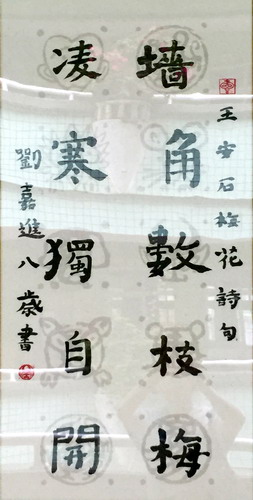 王安石梅花詩句
墙角數枝梅
凌寒獨自開
劉嘉進八歲書